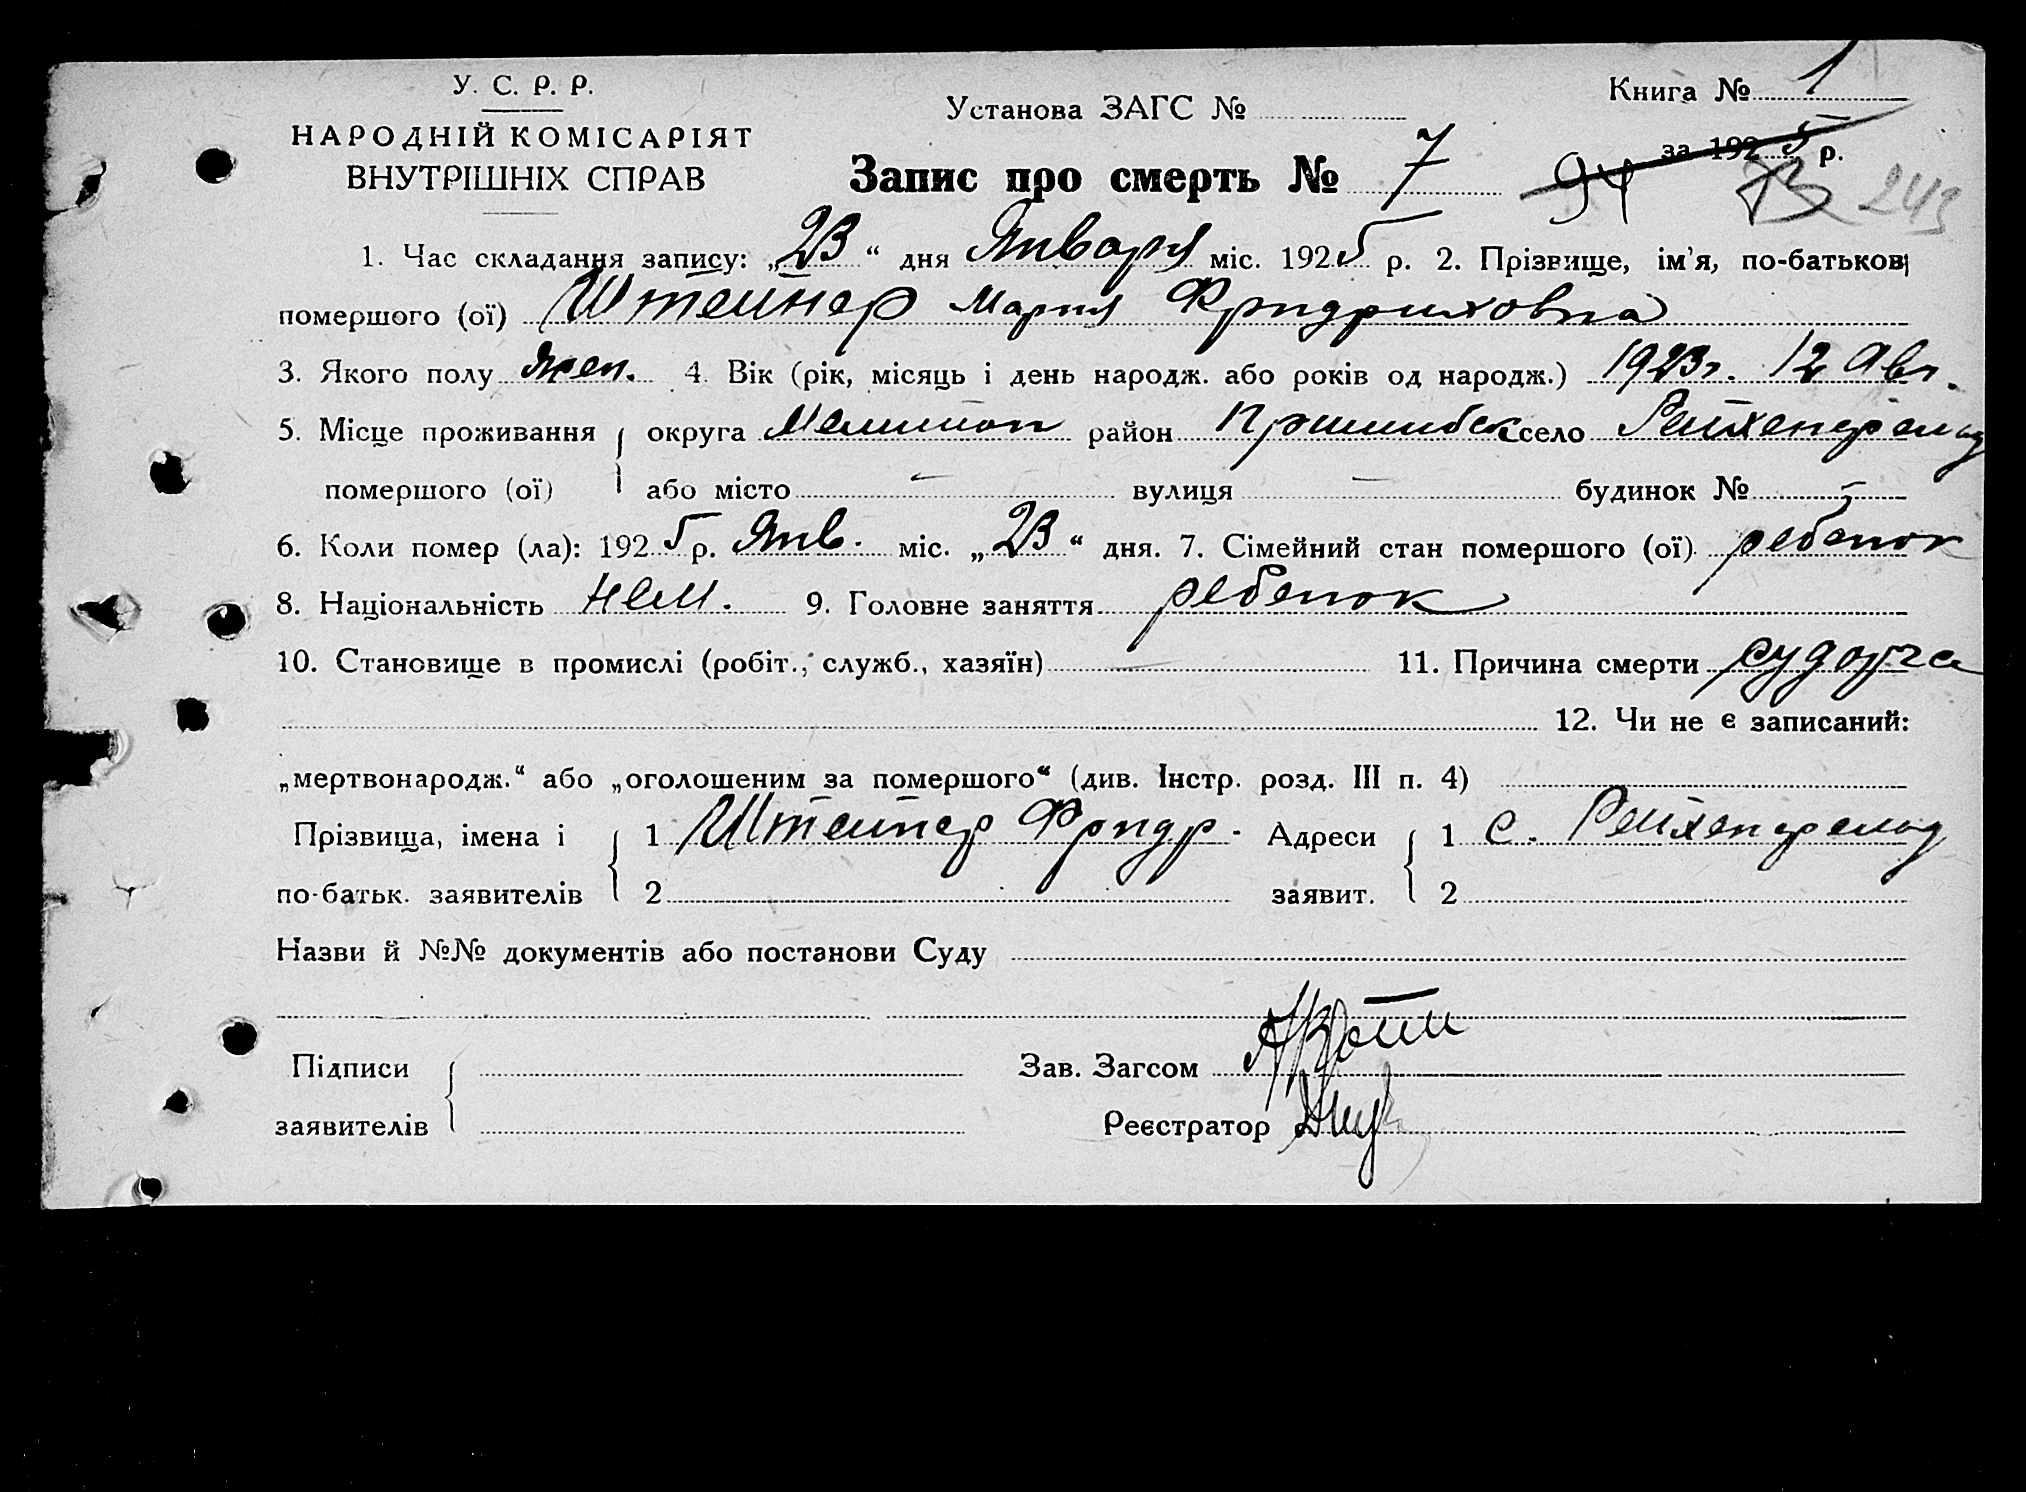 У. С. Р. Р.
НАРОДНІЙ КОМІСАРІЯТ
ВНУТРІШНІХ СПРАВ
Установа ЗАГС №
Книга № 1
за 1925 р.
Запис про смерть № 7 94 243
1. Час складання запису: „23“ дня Января міс. 1925 р. 2. Прізвище, ім'я, по-батькові
помершого (ої) Штейнер Мария Фридриховна
3. Якого полу жен. 4. Вік (рік, місяць і день народж. або років од народж.) 1923г. 12 Авг.
5. Місце проживання округа Мелитоп район Пришибск село Рейхенфельд
помершого (ої) або місто — вулиця — будинок № —
6. Коли помер (ла): 1925 р. Янв. міс. „23“ дня. 7. Сімейний стан помершого (ої) ребенок
8. Національність нем. 9. Головне заняття ребенок
10. Становище в промислі (робіт., служб., хазяїн) — 11. Причина смерти
12. Чи не є записаний:
„мертвонародж.“ або „оголошеним за помершого“ (див. Інстр. розд. III п. 4)
Прізвища, імена і 1 Штейнер Фридр. Адреси 1 с. Рейхенфельд
по-батьк. заявителів 2 заявит. 2
Назви й №№ документів або постанови Суду
Підписи Зав. Загсом
заявителів Реєстратор